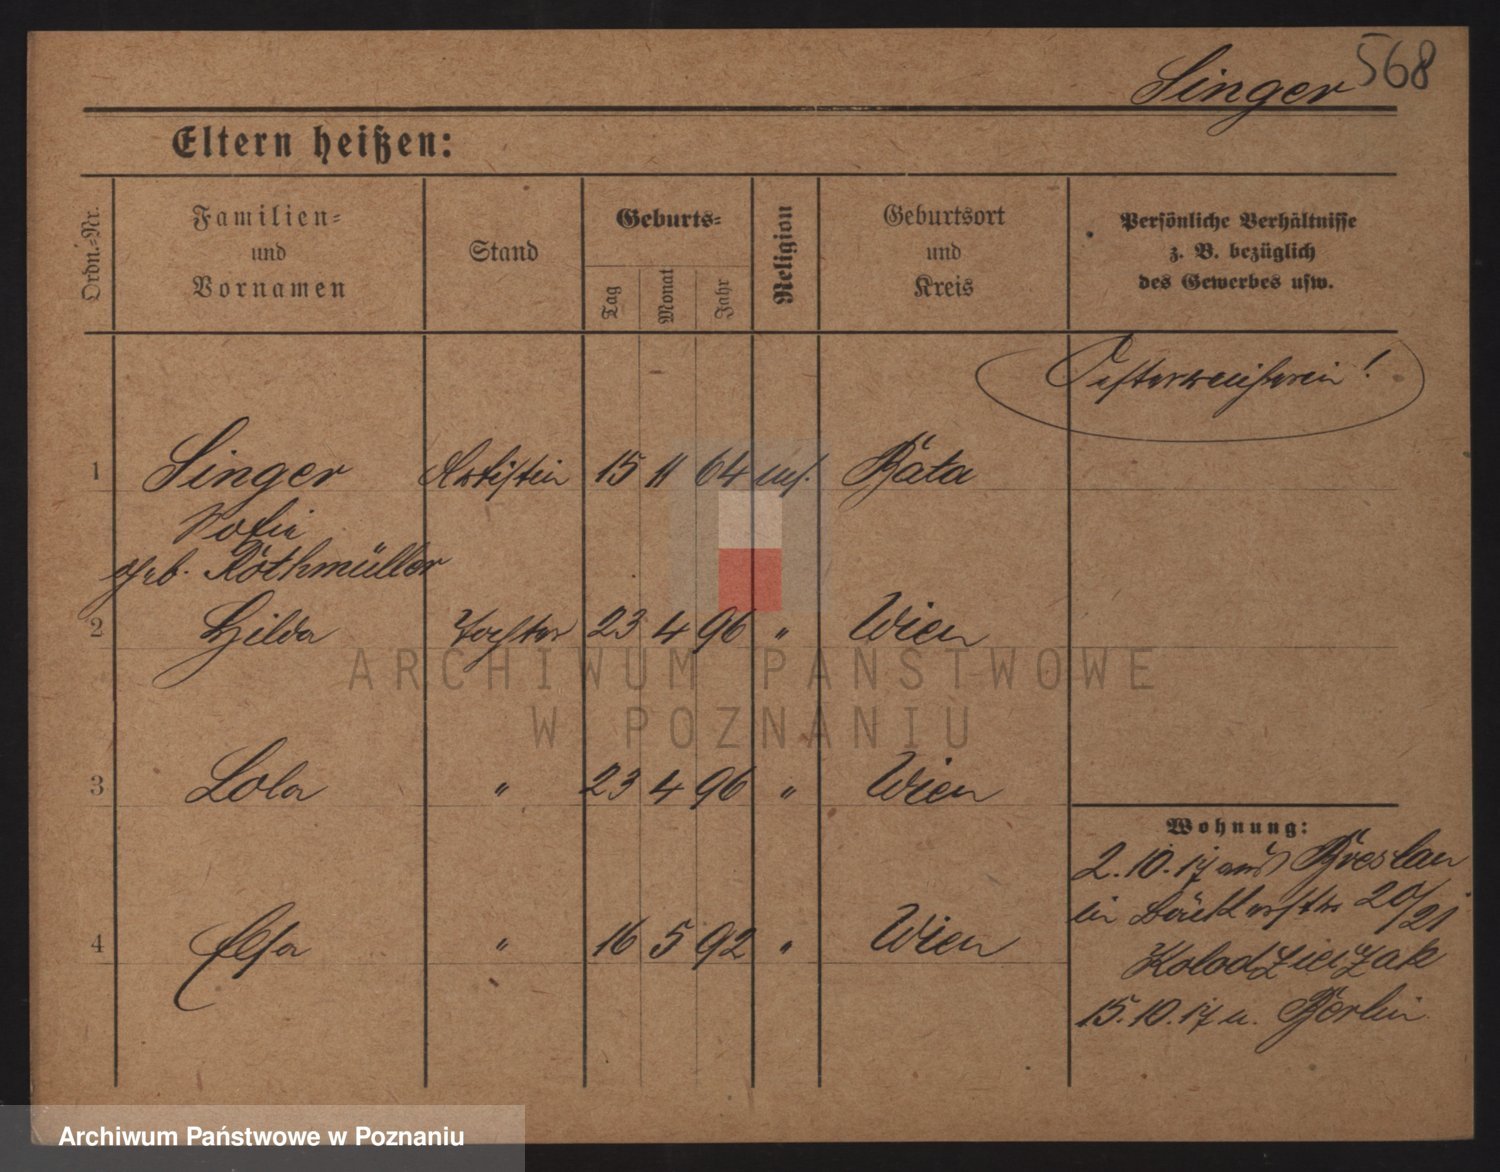 Singer 568
Eltern heißen:
Ordn.=Nr.
Familien=
und
Vornamen
Stand
Geburts=
Tag
Monat
Jahr
Religion
Geburtsort
und
Kreis
Persönliche Verhältnisse
z. B. bezüglich
des Gewerbes usw.
Oesterreicherin!
1 Singer Artistin 15 11 64 mos. Báta
Sofie
geb. Rothmüller
2 Hilda Tochter 23 4 96 " Wien
ARCHIWUM PAŃSTWOWE
W POZNANIU
3 Lola " 23 4 96 " Wien
4 Elsa " 16 5 92 " Wien
Wohnung:
2.10.17 aus Breslau
in 20/21
Kolodzieizak
15.10.17 n. Berlin
Archiwum Państwowe w Poznaniu